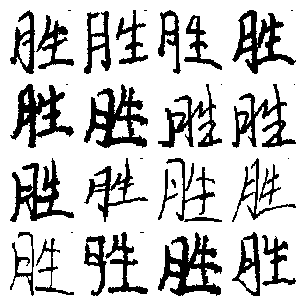 胜胜胜胜
胜胜胜胜
胜胜胜胜
胜胜胜胜